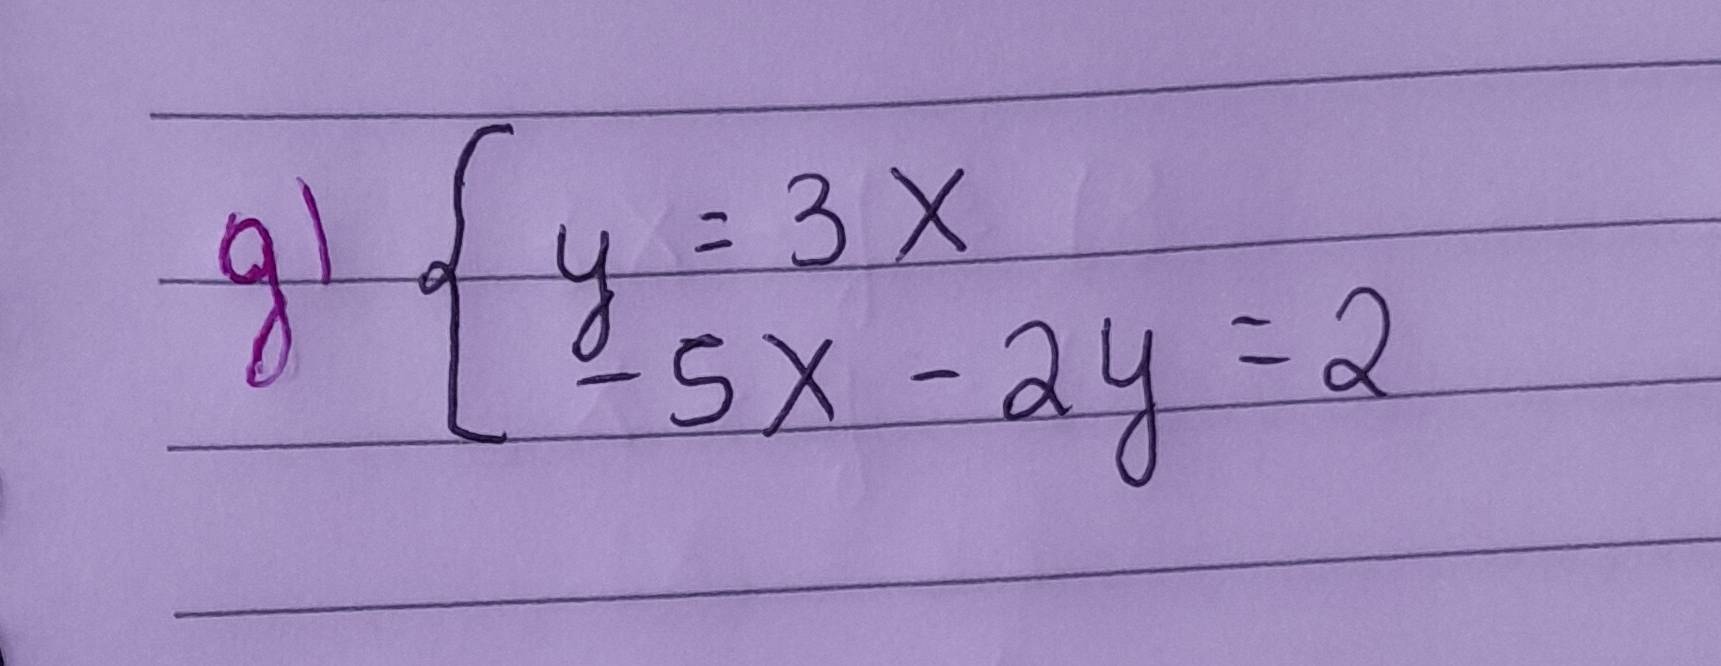 g) { y = 3x
-5x - 2y = 2